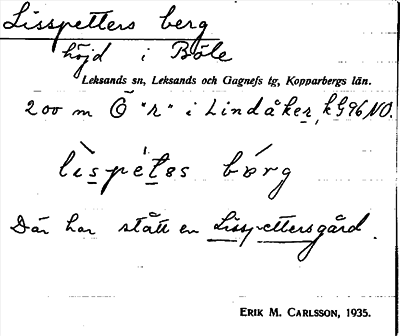 Lisspetters berg
höjd i Böle
Leksands sn, Leksands och Gagnefs tg, Kopparbergs län.
200 m Ö "r" i Lindåker, kG 96 NO.
lìspétəs bərg
Där har stått en Lisspettersgård.
ERIK M. CARLSSON, 1935.